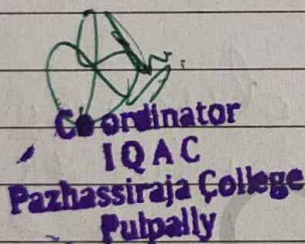 Co-ordinator
IQAC
Pazhassiraja College
Pulpally